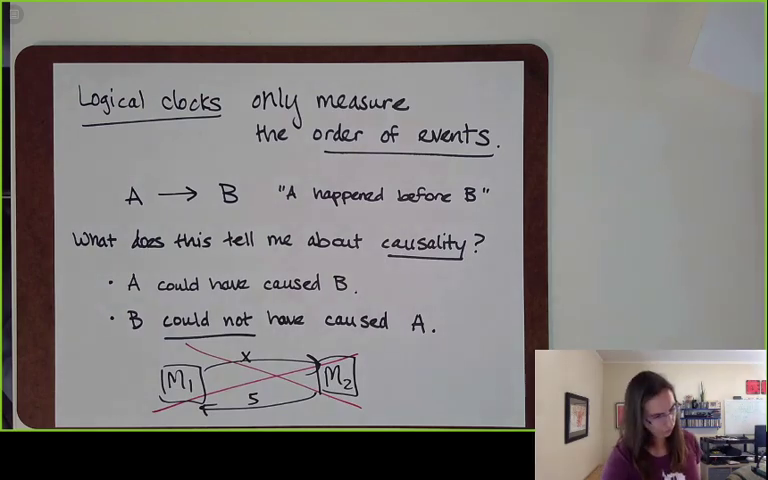 Logical clocks only measure
the order of events.
A → B "A happened before B"
What does this tell me about causality?
• A could have caused B.
• B could not have caused A.
x
M₁ M₂
5